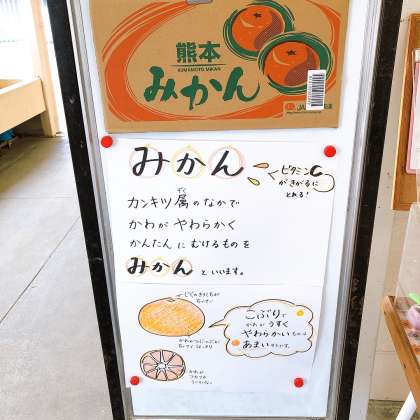 熊本
KUMAMOTO MIKAN
みかん
JA
みかん
ビタミンC
がきがるに
とれる!
カンキツ属のなかで
ぞく
かわが やわらかく
かんたんに むけるものを
みかん といいます。
こぶりで
かわが うすく
やわらかい
あまい